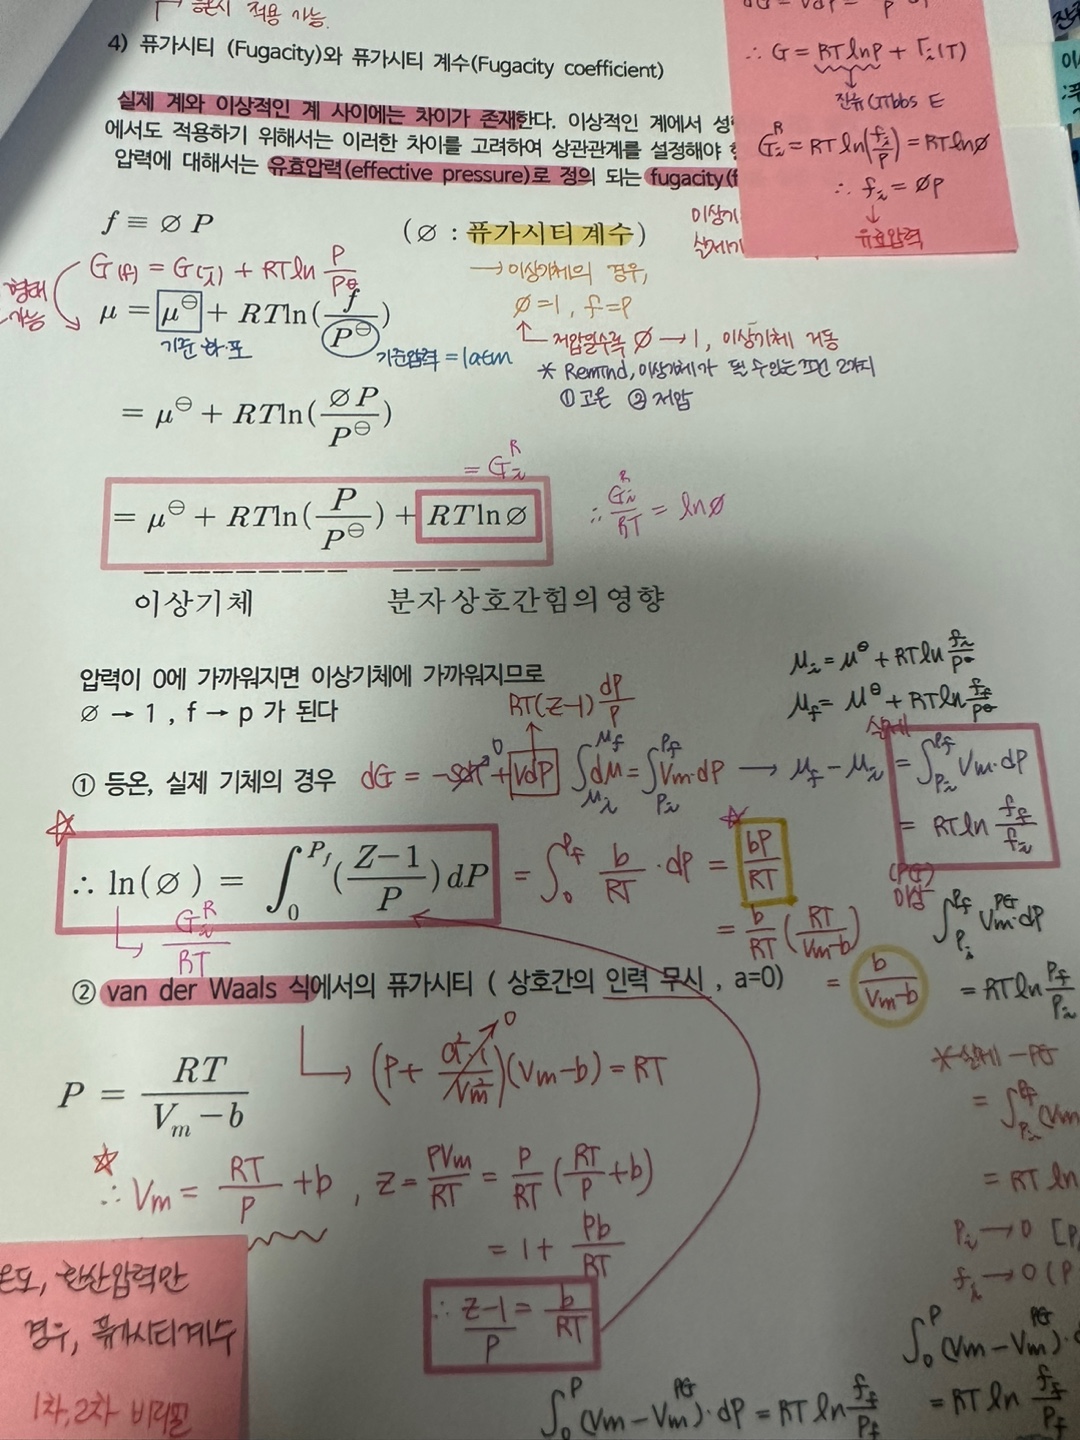 혼합시 적용 가능.
4) 퓨가시티 (Fugacity)와 퓨가시티 계수(Fugacity coefficient)
실제 계와 이상적인 계 사이에는 차이가 존재한다. 이상적인 계에서
에서도 적용하기 위해서는 이러한 차이를 고려하여 상관관계를 설정해야
압력에 대해서는 유효압력(effective pressure)로 정의 되는 fugacity(f
∴ G = RT lnP + Γi(T)
잔류 Gibbs E
GiR = RT ln(fi/P) = RT lnØ
∴ fi = ØP
유효압력
f ≡ Ø P
(Ø : 퓨가시티 계수)
이상기
실제기
→ 이상기체의 경우,
Ø=1, f=P
G(f) = G(i) + RT ln P/P⊖
μ = μ⊖ + RT ln(f/P⊖)
기준압력 = 1atm
저압일수록 Ø → 1, 이상기체 거동
* Remind, 이상기체가 될 수 있는 조건 2가지
① 고온 ② 저압
= μ⊖ + RT ln(Ø P/P⊖)
= GiR
= μ⊖ + RT ln(P/P⊖) + RT lnØ
∴ GiR/RT = lnØ
이상기체
분자상호간힘의영향
압력이 0에 가까워지면 이상기체에 가까워지므로
Ø → 1 , f → p 가 된다
μi = μ⊖ + RT ln fi/P⊖
μf = μ⊖ + RT ln ff/P⊖
RT(Z-1) dP/P
① 등온, 실제 기체의 경우
dG = -SdT + VdP
∫μiμf dμ = ∫PiPf Vm·dP → μf - μi = ∫PiPf Vm·dP
실제
= RT ln ff/fi
∴ ln(Ø) = ∫0Pf (Z-1/P) dP = ∫0Pf b/RT · dP = bP/RT
GiR/RT
= b/RT (RT/Vm-b)
= b/Vm-b
(PG)
이상
∫PiPf VmPG·dP
= RT ln Pf/Pi
② van der Waals 식에서의 퓨가시티 ( 상호간의 인력 무시 , a=0)
P = RT/Vm - b
(Vm-b) = RT
*실제 - PG
= ∫PiPf (Vm
= RT ln
∴ Vm = RT/P + b , Z = PVm/RT = P/RT (RT/P + b)
= 1 + Pb/RT
∴ Z-1/P = b/RT
Pi → 0 [P
fi → 0 (P
온도, 환산압력만
경우, 퓨가시티계수
1차, 2차 비리얼
∫0P (Vm - VmPG)·
= RT ln ff/Pf
∫0P (Vm - VmPG)·dP = RT ln ff/Pf